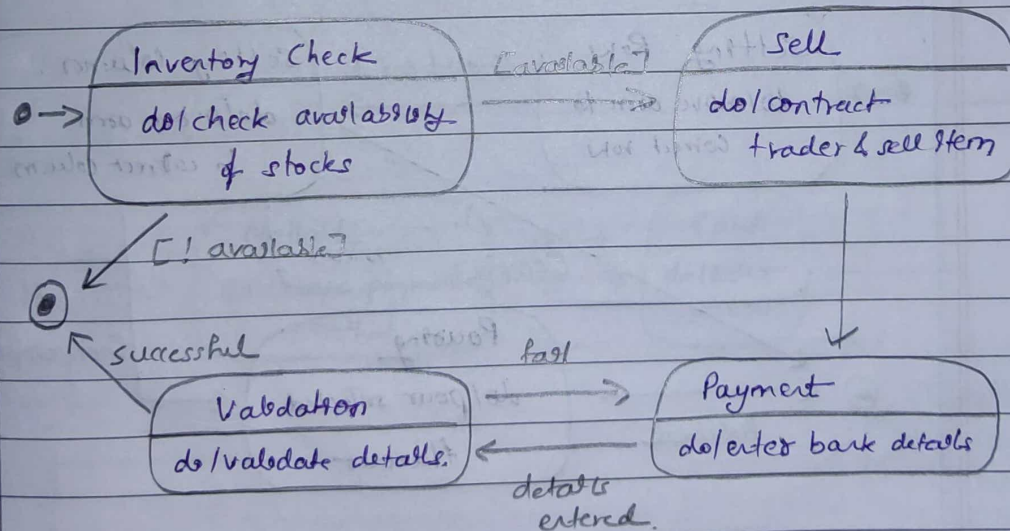 Inventory Check
do/check availability
of stocks
[available]
Sell
do/contract
trader & sell item
[! available]
successful
fail
Validation
do/validate details.
Payment
do/enter bank details
details
entered.